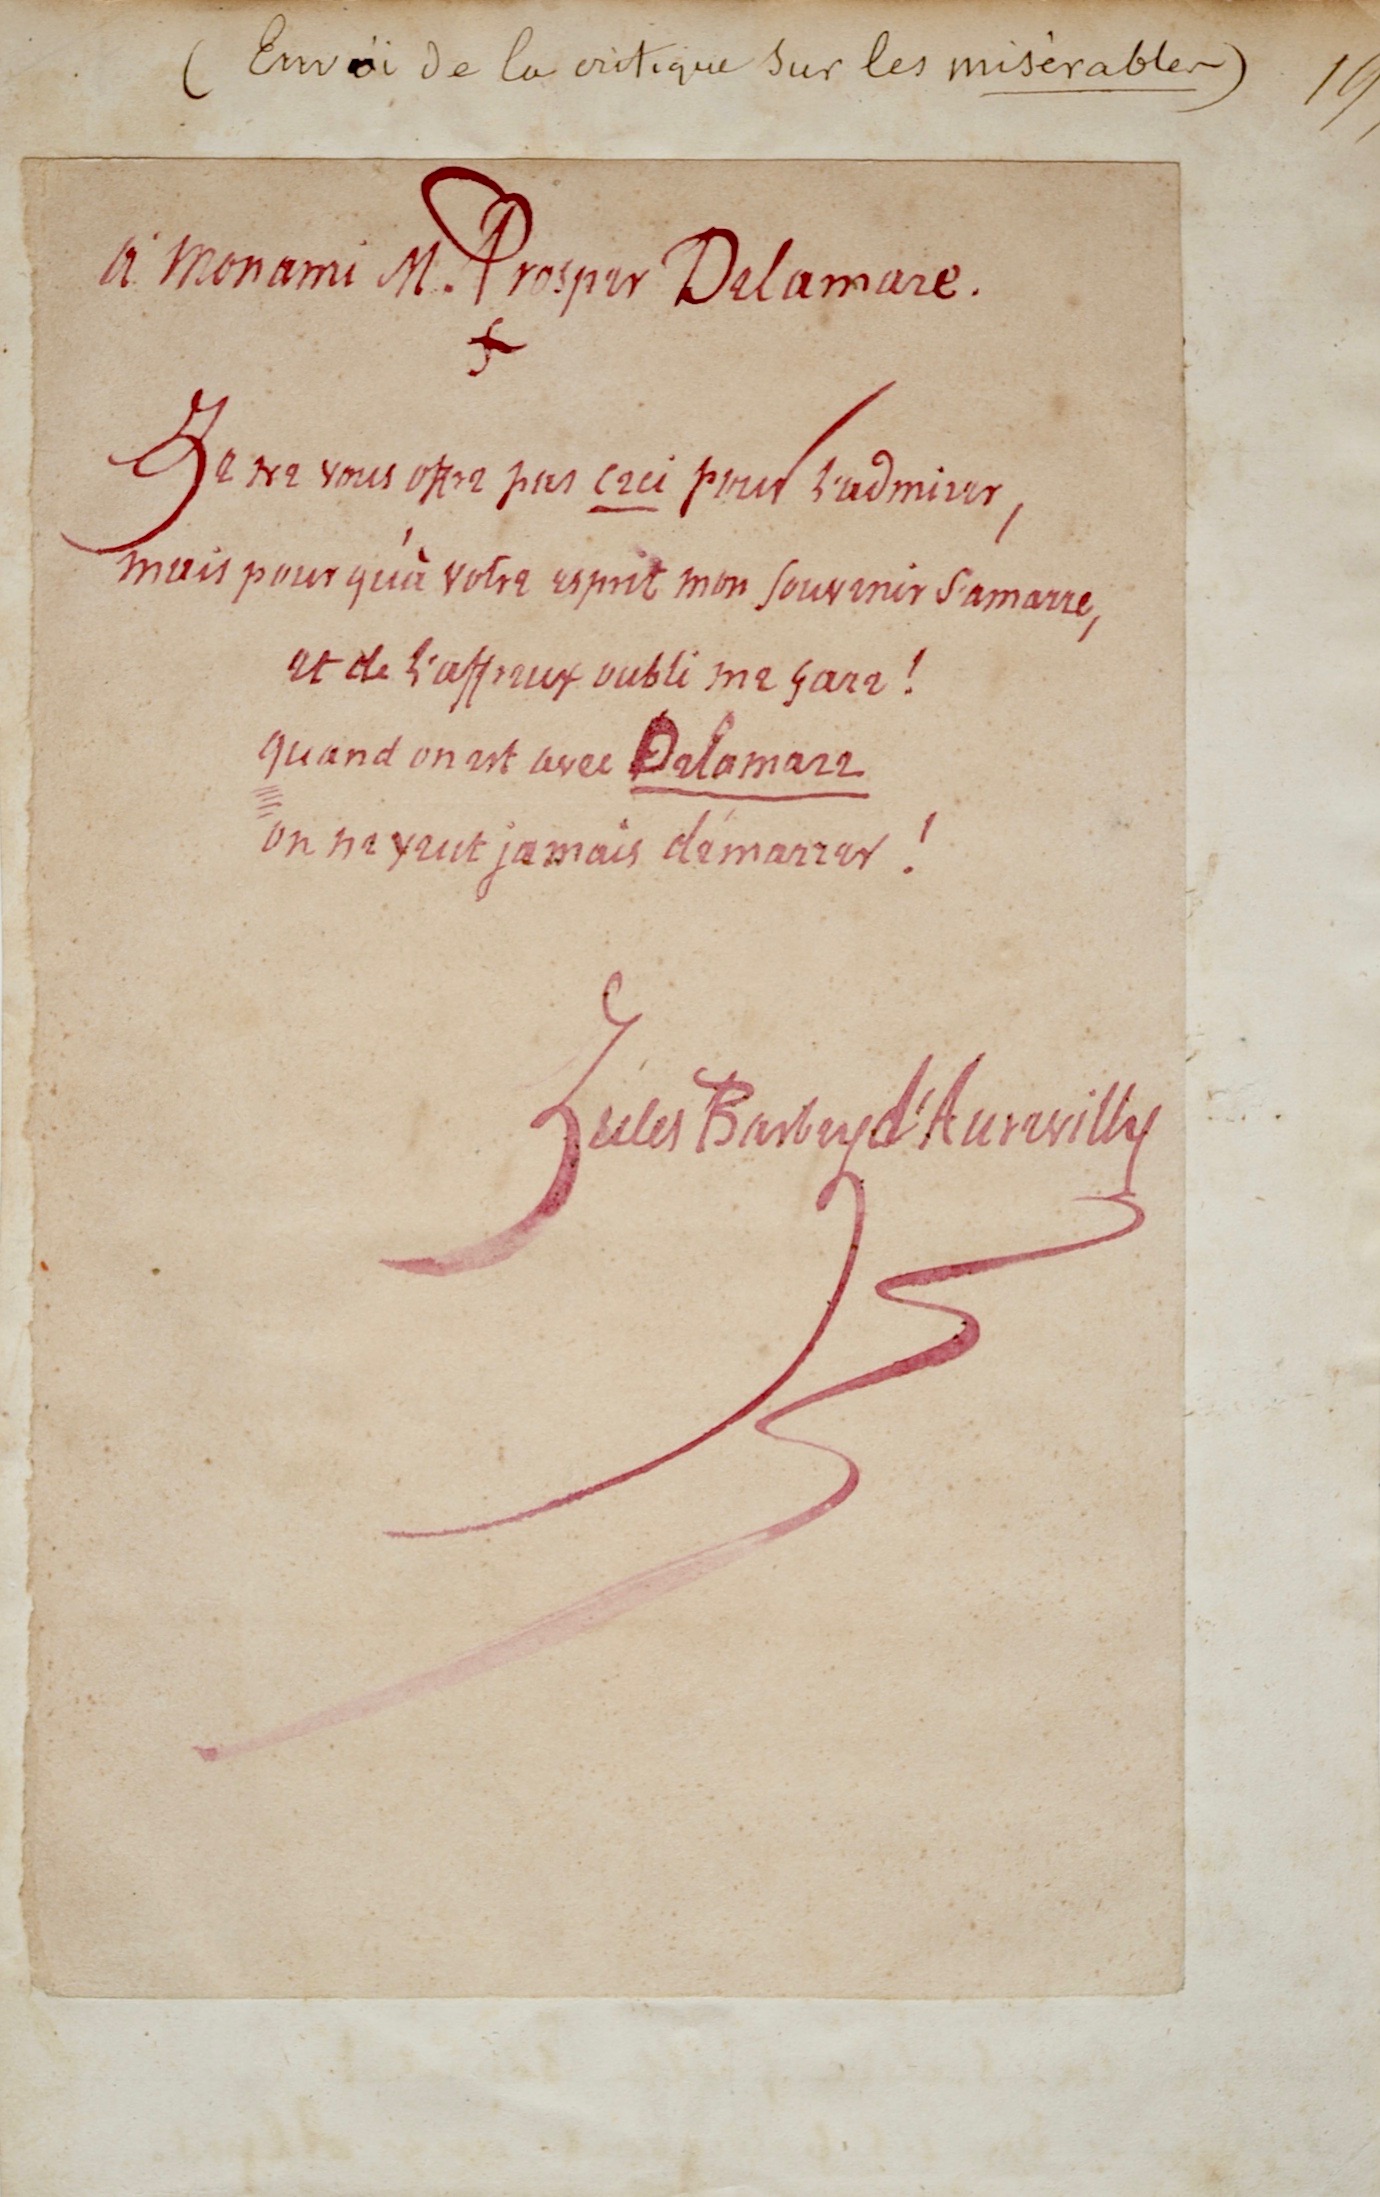 ( Envoi de la critique sur les misérables )
à mon ami M. Prosper Delamare.
Je ne vous offre pas ceci pour l'admirer,
mais pour qu'à votre esprit mon souvenir s'amarre,
et de l'affreux oubli me gare !
quand on est avec Delamare
on ne veut jamais démarrer !
Jules Barbey d'Aurevilly